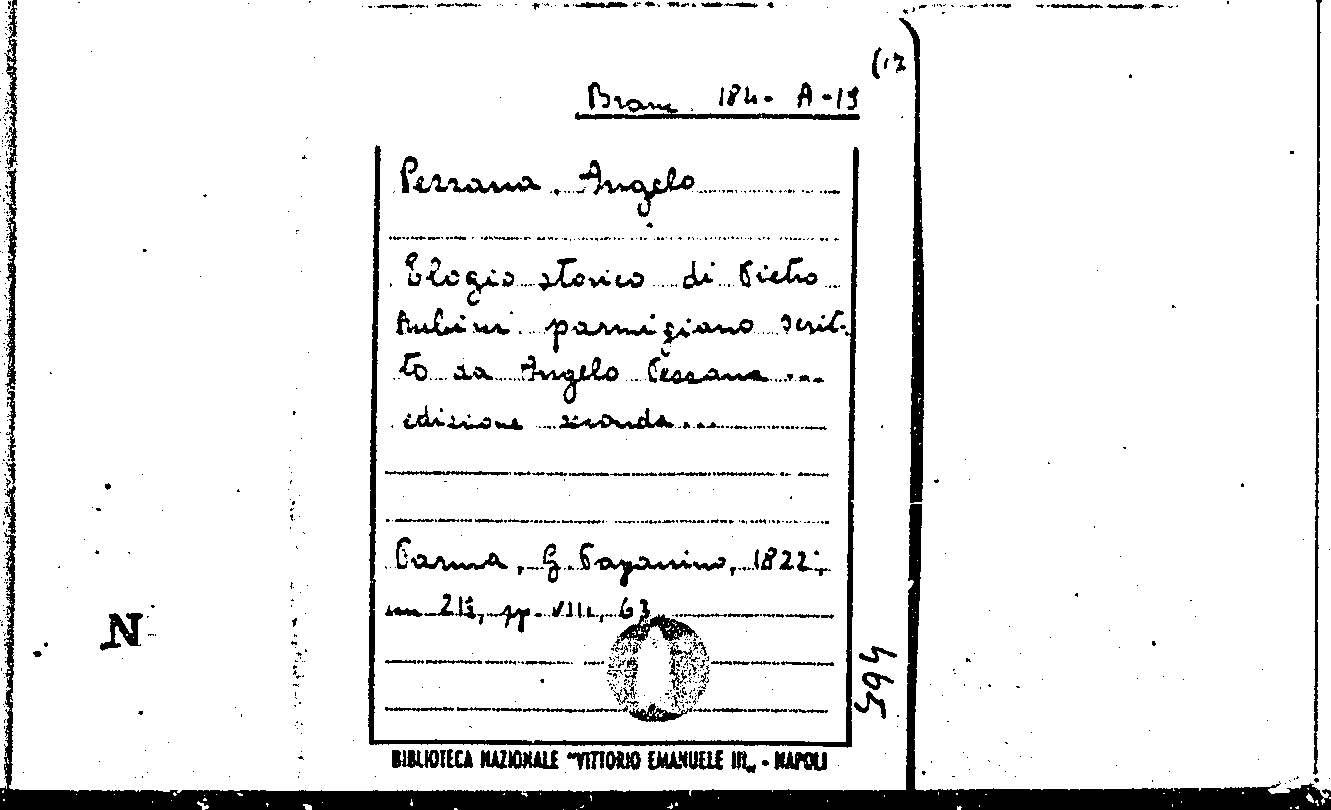 (17
Branc. 184- A-19
Pezzana, Angelo
Elogio storico di Pietro
Rubini parmigiano scrit-
to da Angelo Pezzana ...
edizione seconda ...
Parma, G. Paganino, 1822;
cm 21½, pp. VIII, 63
N
594
BIBLIOTECA NAZIONALE "VITTORIO EMANUELE III„ - NAPOLI